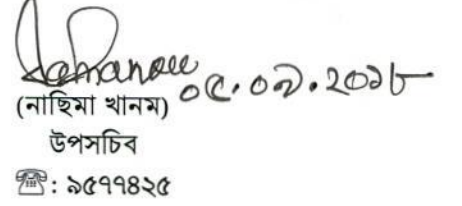 ০৫.০৯.২০১৮
(নাছিমা খানম)
উপসচিব
☎: ৯৫৭৭৪২৫